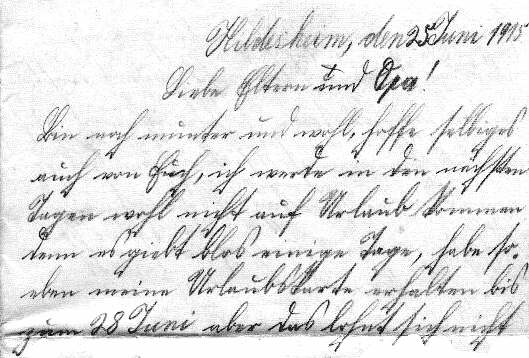 Hildesheim, den 25 Juni 1915
Liebe Eltern und Opa!
Bin noch munter und wohl, hoffe selbiges
auch von Euch, ich werde in den nächsten
Tagen wohl nicht auf Urlaub kommen
denn es giebt blos einige Tage, habe so-
eben meine Urlaubskarte erhalten bis
zum 28 Juni aber das lohnt sich nicht